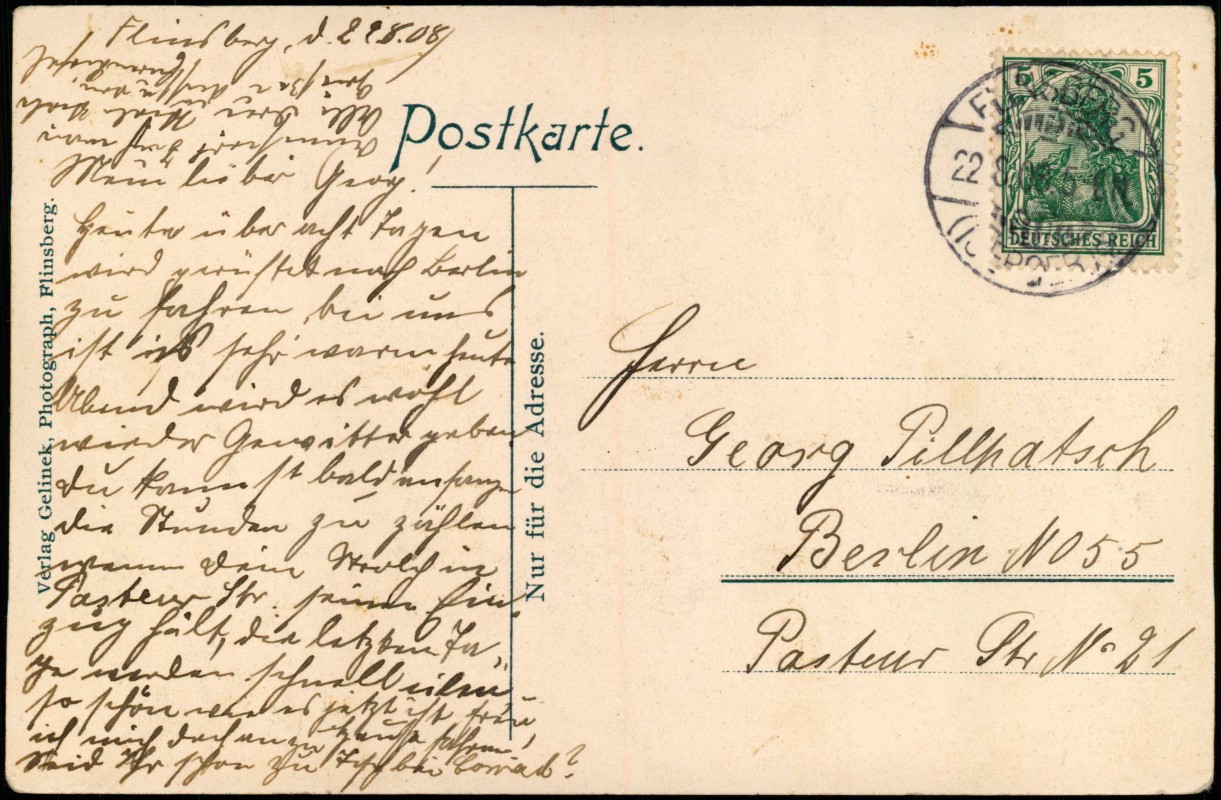 Flinsberg, d. 22.8.08
Postkarte.
Mein lieber Georg!
Heute über acht Tagen
wird gerüstet nach Berlin
zu fahren, bei uns
ist es sehr warm heute
Abend wird es wohl
wieder Gewitter geben
du kannst bald anfangen
die Stunden zu zählen
wann dein Strolch in
Pasteur Str. seinen Ein-
zug hält, die letzten Ta-
ge werden schnell eilen
so schön wie es jetzt ist freu
ich mich doch an zu Hause fahren,
Seid Ihr schon zu Tisch bei
Verlag Gelinek, Photograph, Flinsberg.
Nur für die Adresse.
5 5
DEUTSCHES REICH
FLINSBERG
22.8.08
Herrn
Georg Pillhatsch
Berlin NO 55
Pasteur Str No 21